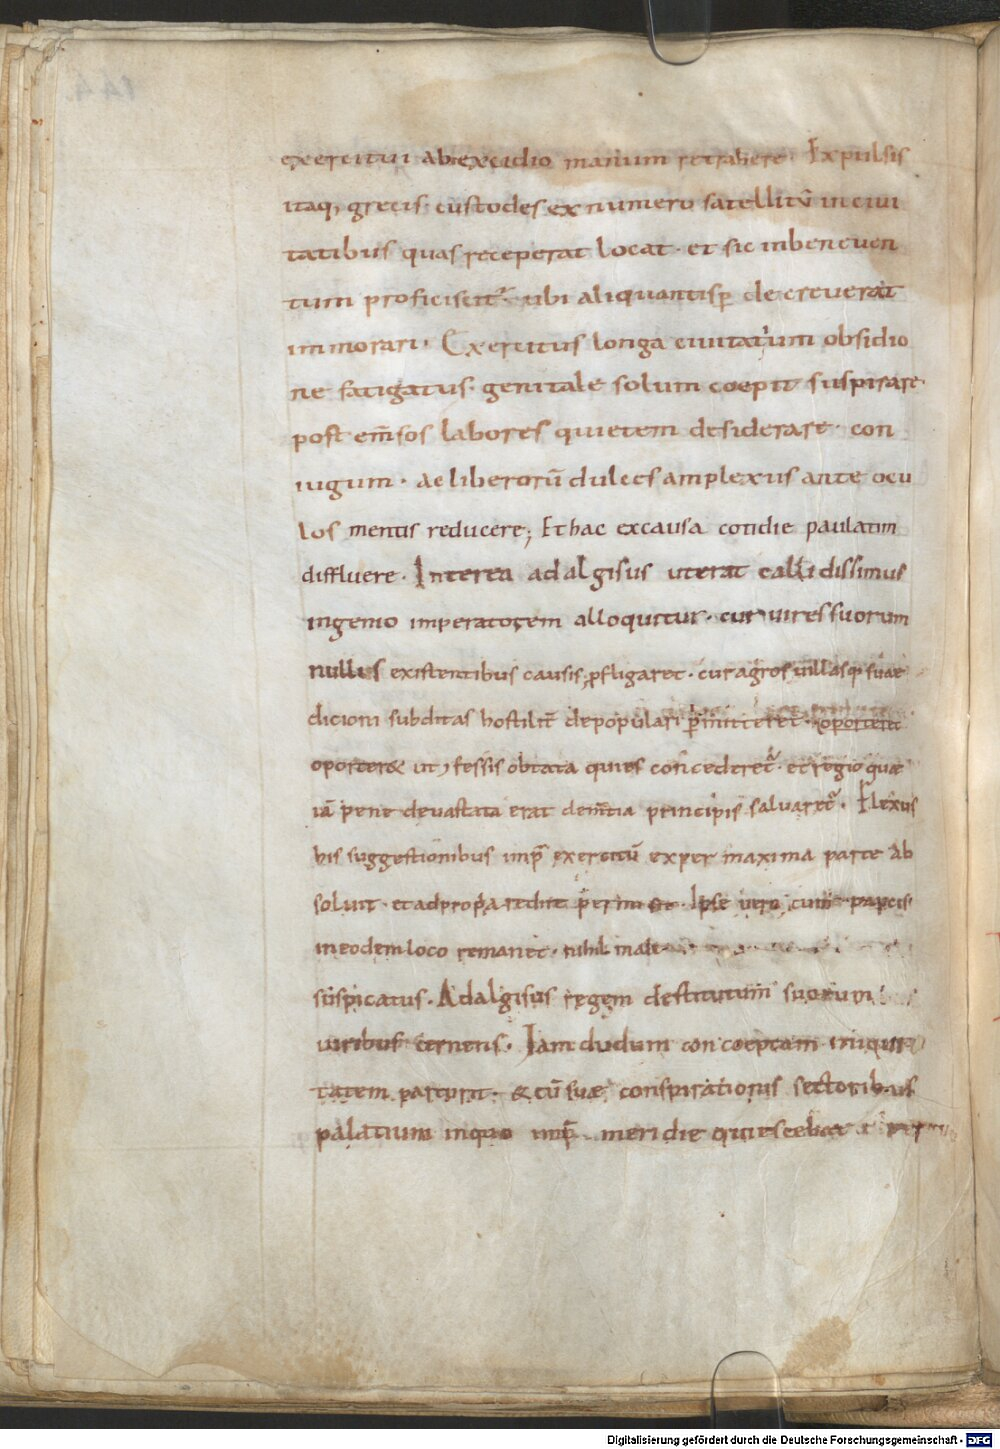 exercitui ab excidio manum retrahere. Expulsis
itaq; grecis custodes ex numero satellitū in ciui
tatibus quas receperat locat. et sic in beneuen
tum proficiscit̄ ubi aliquantisp̄ decreuerat
immorari. Exercitus longa ciuitatum obsidio
ne fatigatus. genitale solum coepit suspirare.
post em̄sos labores quietem desiderare. con
iugum. ac liberorū dulces amplexus ante ocu
los mentis reducere; Et hac ex causa cotidie paulatim
diffluere. Interea adalgisus ut erat callidissimus
ingenio imperatorem alloquitur. cur uires suorum
nullis existentibus causis, p̄fligaret. cur agros uillasq; suae
dicioni subditas hostilit̄ depopulari p̄mitteret. oporteret
oporter& ut fessis obtata quies concederet̄. et regio quae
iā pene deuastata erat clem̄tia principis saluaret̄. Flexus
his suggestionibus imp̄r exercitū ex permaxima parte ab
soluit. et ad propria redire p̄ Ipse uero cum paucis
in eodem loco remanet. nihil male
suspicatus. Adalgisus regem destitutum suorum
uiribus cernens. Iam dudum conceptam iniqui
tatem parturit. & cū suae conspirationis sectoribus
palatium in quo imp̄r meridie quiescebat
Digitalisierung gefördert durch die Deutsche Forschungsgemeinschaft - DFG